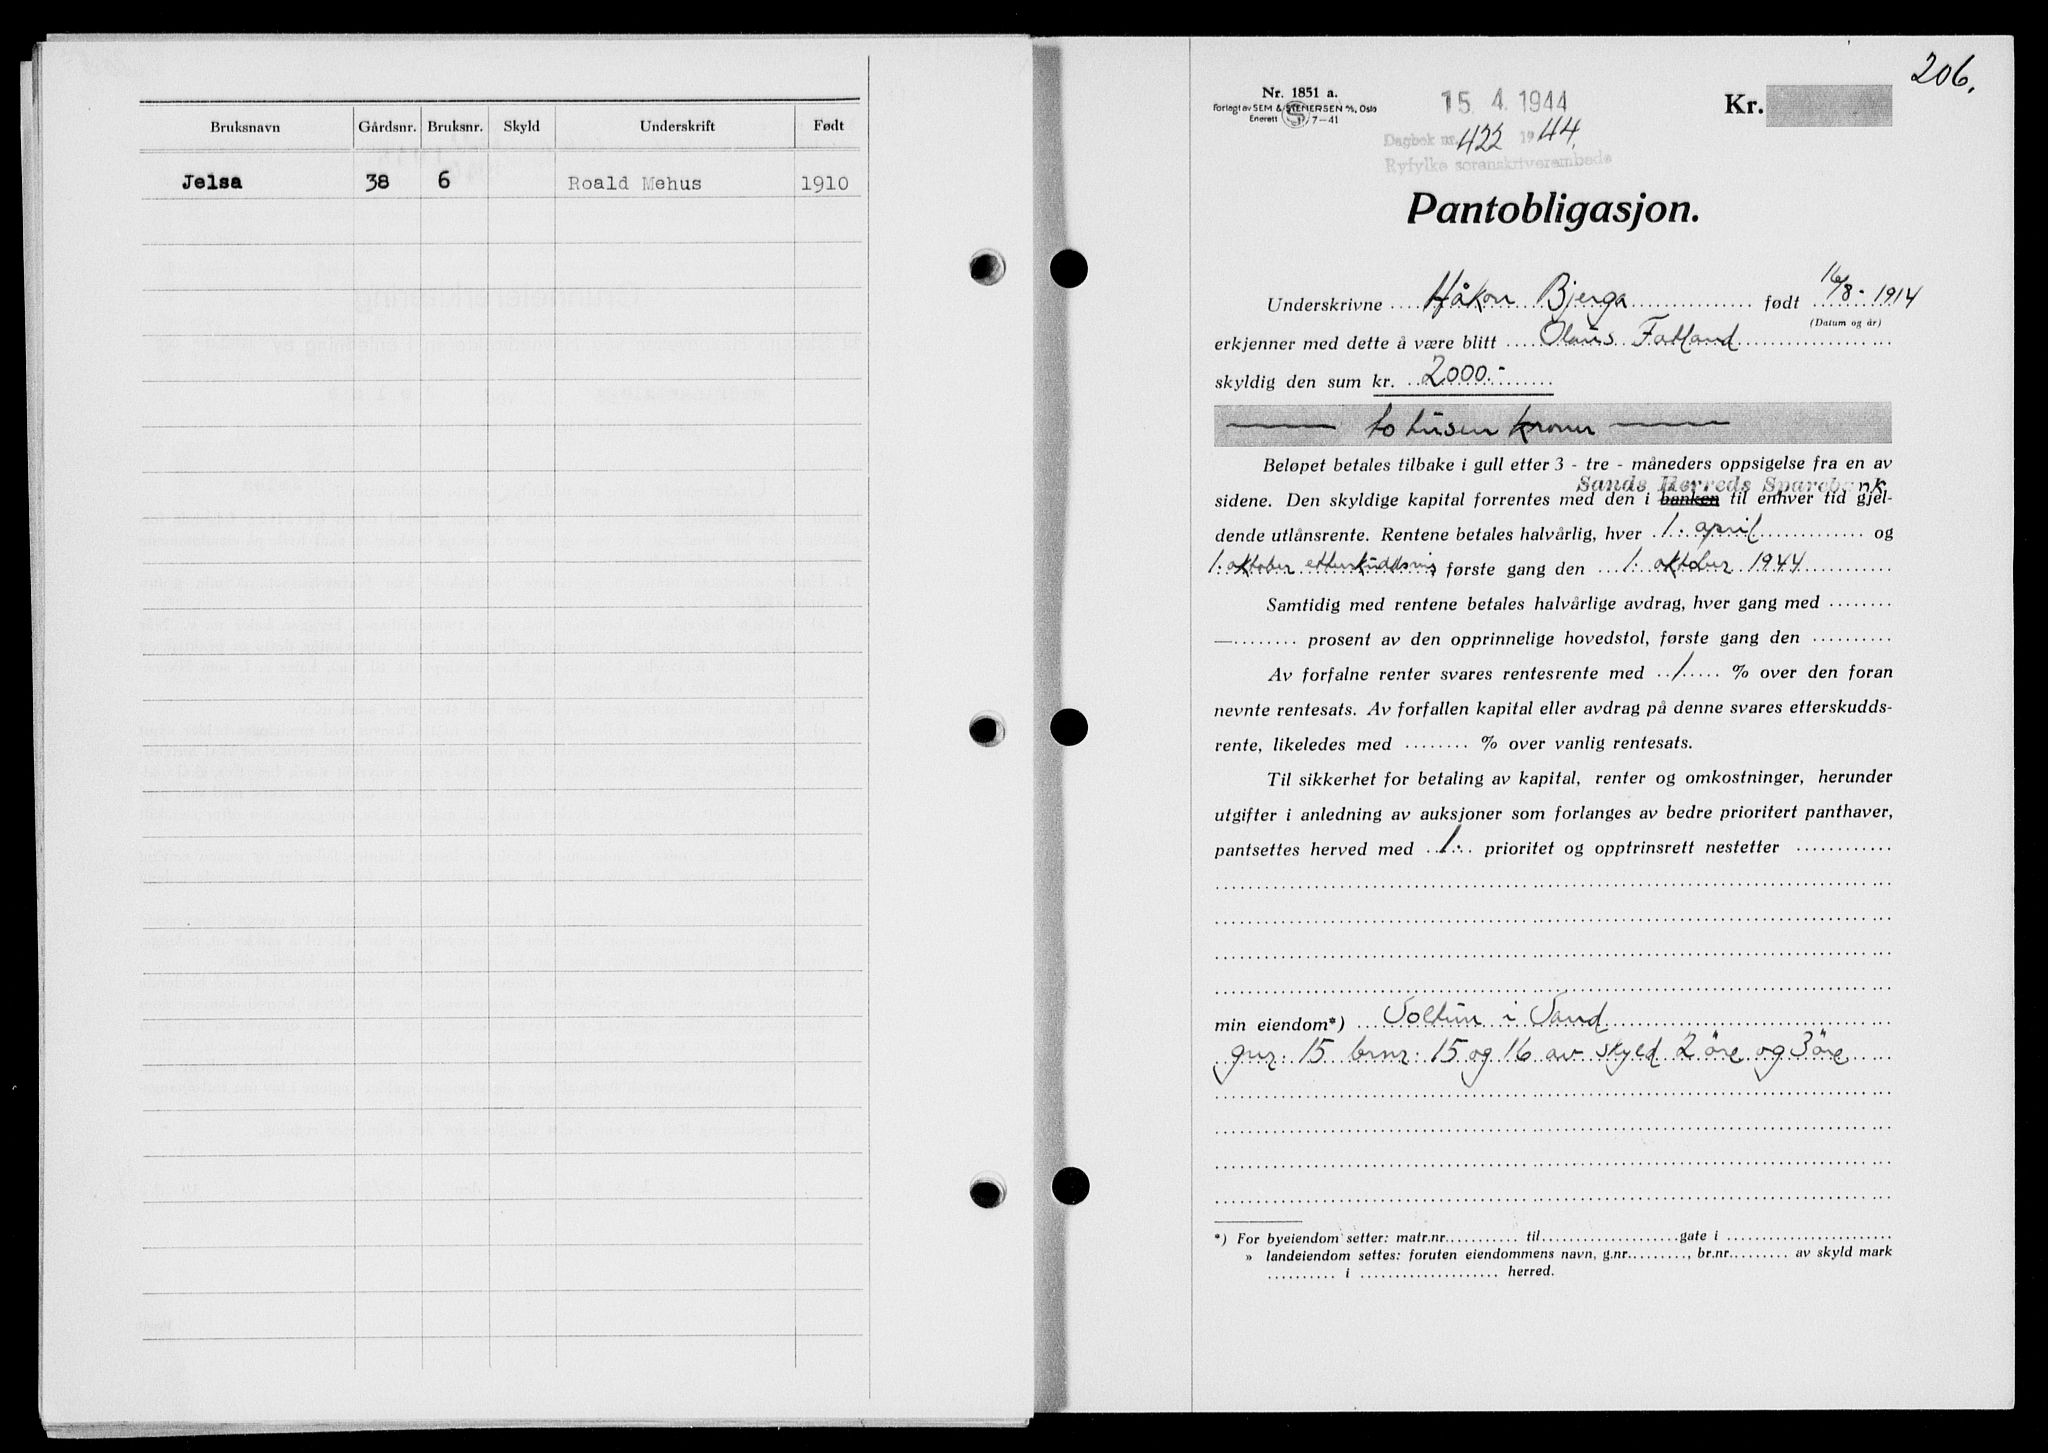 Bruksnavn Gårdsnr. Bruksnr. Skyld Underskrift Født
Jelsa 38 6 Roald Mehus 1910
206.
Nr. 1851 a.
Forlagt av SEM & STENERSEN A/S, Oslo
Enerett 7-41
15 4. 1944
Kr.
Dagbok nr. 422 1944.
Ryfylke sorenskriverembede
Pantobligasjon.
Underskrivne Håkon Bjerga født 16/8-1914
(Datum og år)
erkjenner med dette å være blitt Olaus Fatland
skyldig den sum kr. 2000.-
to tusen kroner
Beløpet betales tilbake i gull etter 3 - tre - måneders oppsigelse fra en av
Sands Herreds Sparebank
sidene. Den skyldige kapital forrentes med den i banken til enhver tid gjel-
dende utlånsrente. Rentene betales halvårlig, hver 1. april og
1. oktober etterskuddsvis første gang den 1. oktober 1944
Samtidig med rentene betales halvårlige avdrag, hver gang med
— prosent av den opprinnelige hovedstol, første gang den
Av forfalne renter svares rentesrente med 1 % over den foran
nevnte rentesats. Av forfallen kapital eller avdrag på denne svares etterskudds-
rente, likeledes med % over vanlig rentesats.
Til sikkerhet for betaling av kapital, renter og omkostninger, herunder
utgifter i anledning av auksjoner som forlanges av bedre prioritert panthaver,
pantsettes herved med 1. prioritet og opptrinsrett nestetter
min eiendom*) Soltun i Sand
gnr: 15 brnr: 15 og 16 av skyld 2 øre og 3 øre
*) For byeiendom setter: matr.nr. til gate i
» landeiendom settes: foruten eiendommens navn, g.nr. , br.nr. av skyld mark
i herred.